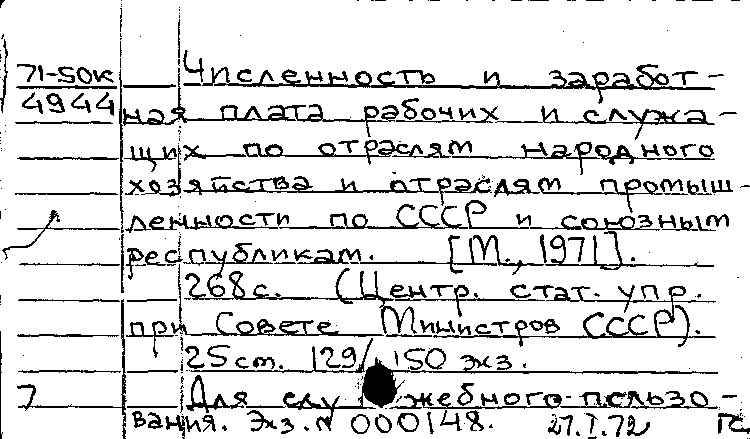 71-50К Численность и заработ-
4944 ная плата рабочих и служа-
щих по отраслям народного
хозяйства и отраслям промыш-
ленности по СССР и союзным
республикам. [М., 1971].
268с. (Центр. стат. упр.
при Совете Министров СССР).
25см. 129/ 150 экз.
7 Для служебного пользо-
вания. Экз. № 000148. 27.I.72